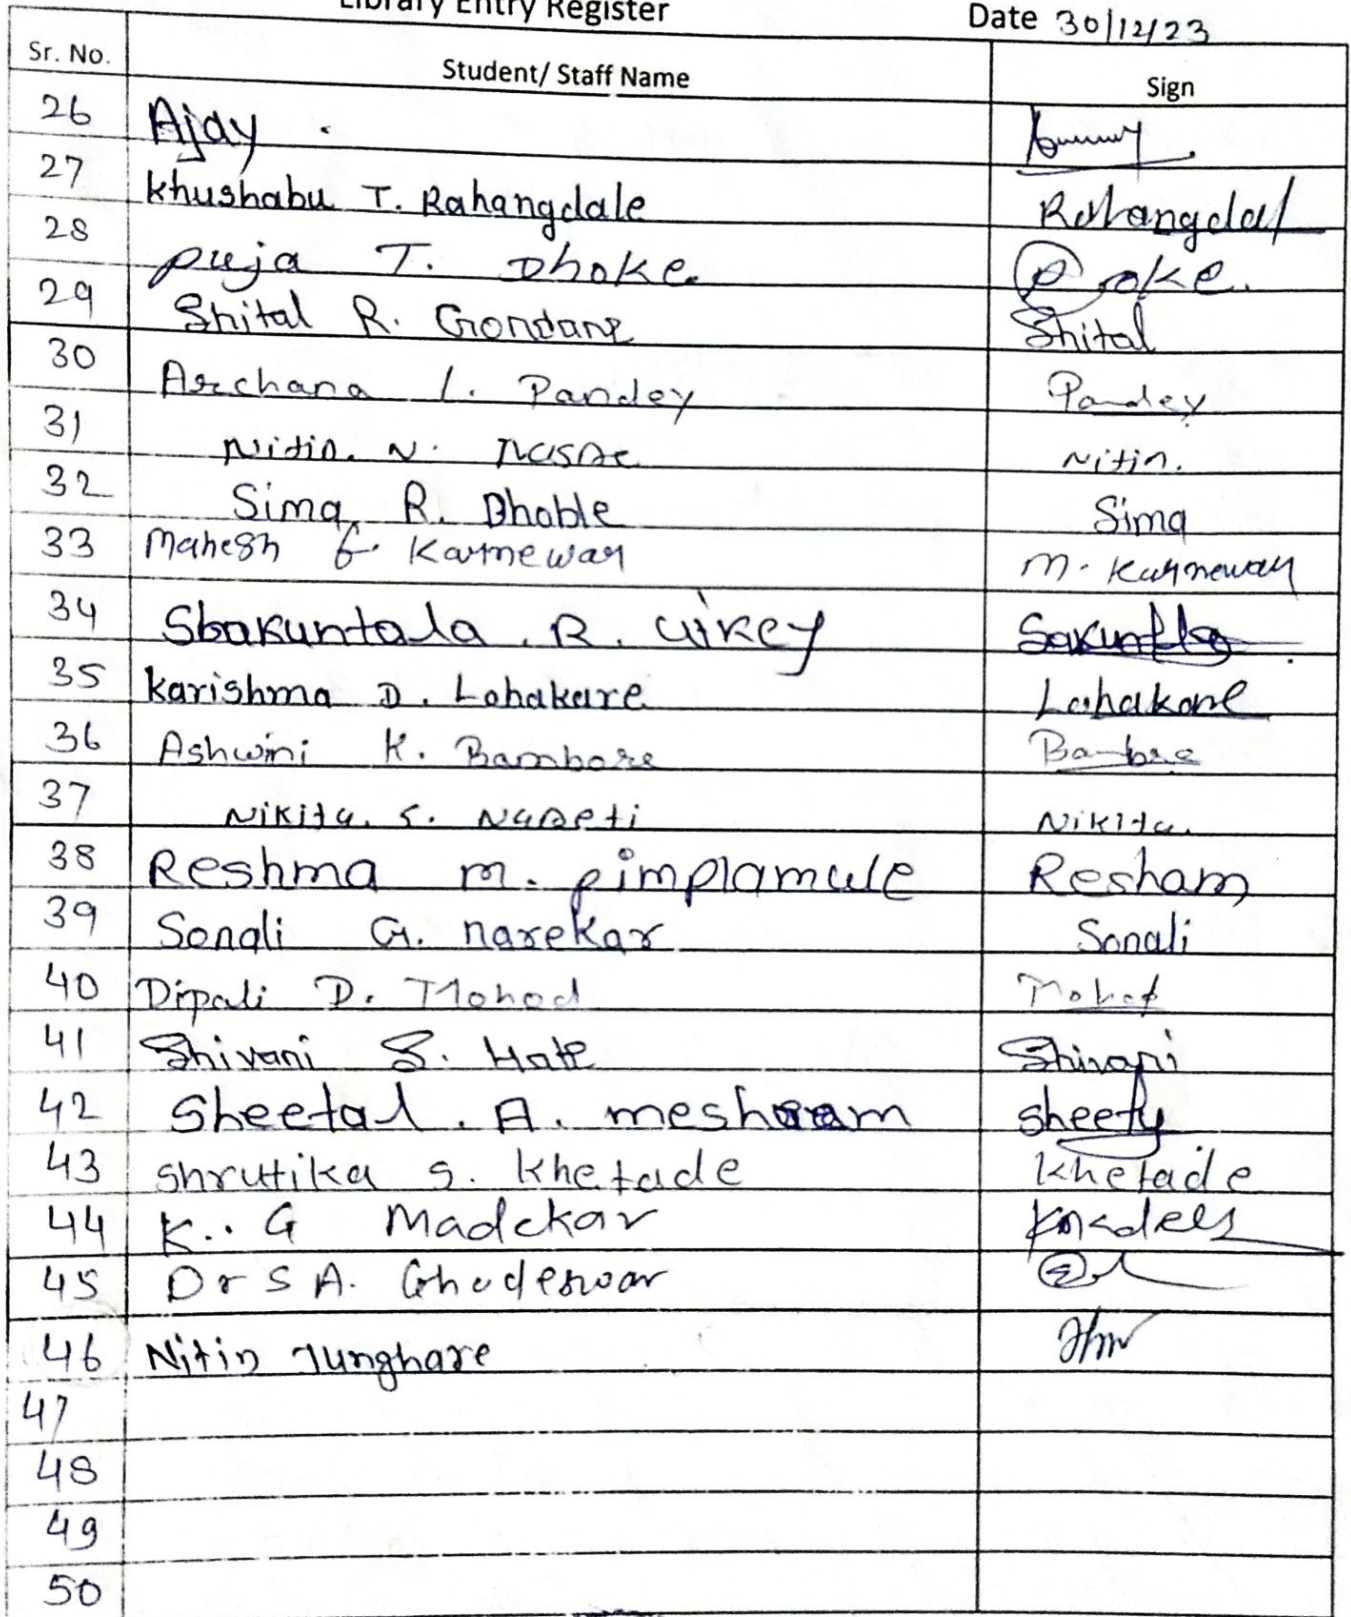 Library Entry Register Date 30/12/23
Sr. No. Student/ Staff Name Sign
26 Ajay .
27 Khushabu T. Rahangdale Rahangdal
28 puja T. Dhoke
29 Shital R. Gondane Shital
30 Archana L. Pandey Pandey
31 Nitin. N. Nitin.
32 Sima R. Dhoble Sima
33 Mahesh G. Karnewar M. Karnewar
34 Shakuntala . R. Uikey
35 Karishma D. Lohakare Lohakare
36 Ashwini K. Bambore Bambre
37 Nikita. S. Nareti Nikita.
38 Reshma m. pimplamule Resham
39 Sonali G. narekar Sonali
40 Dipali D. Mohod Mohod
41 Shivani S. Hate Shivani
42 Sheetal . A. meshram
43 Shrutika S. Khetade Khetade
44 K.. G Madekar
45 Dr S A. Ghodeswar
46 Nitin Junghare
47
48
49
50